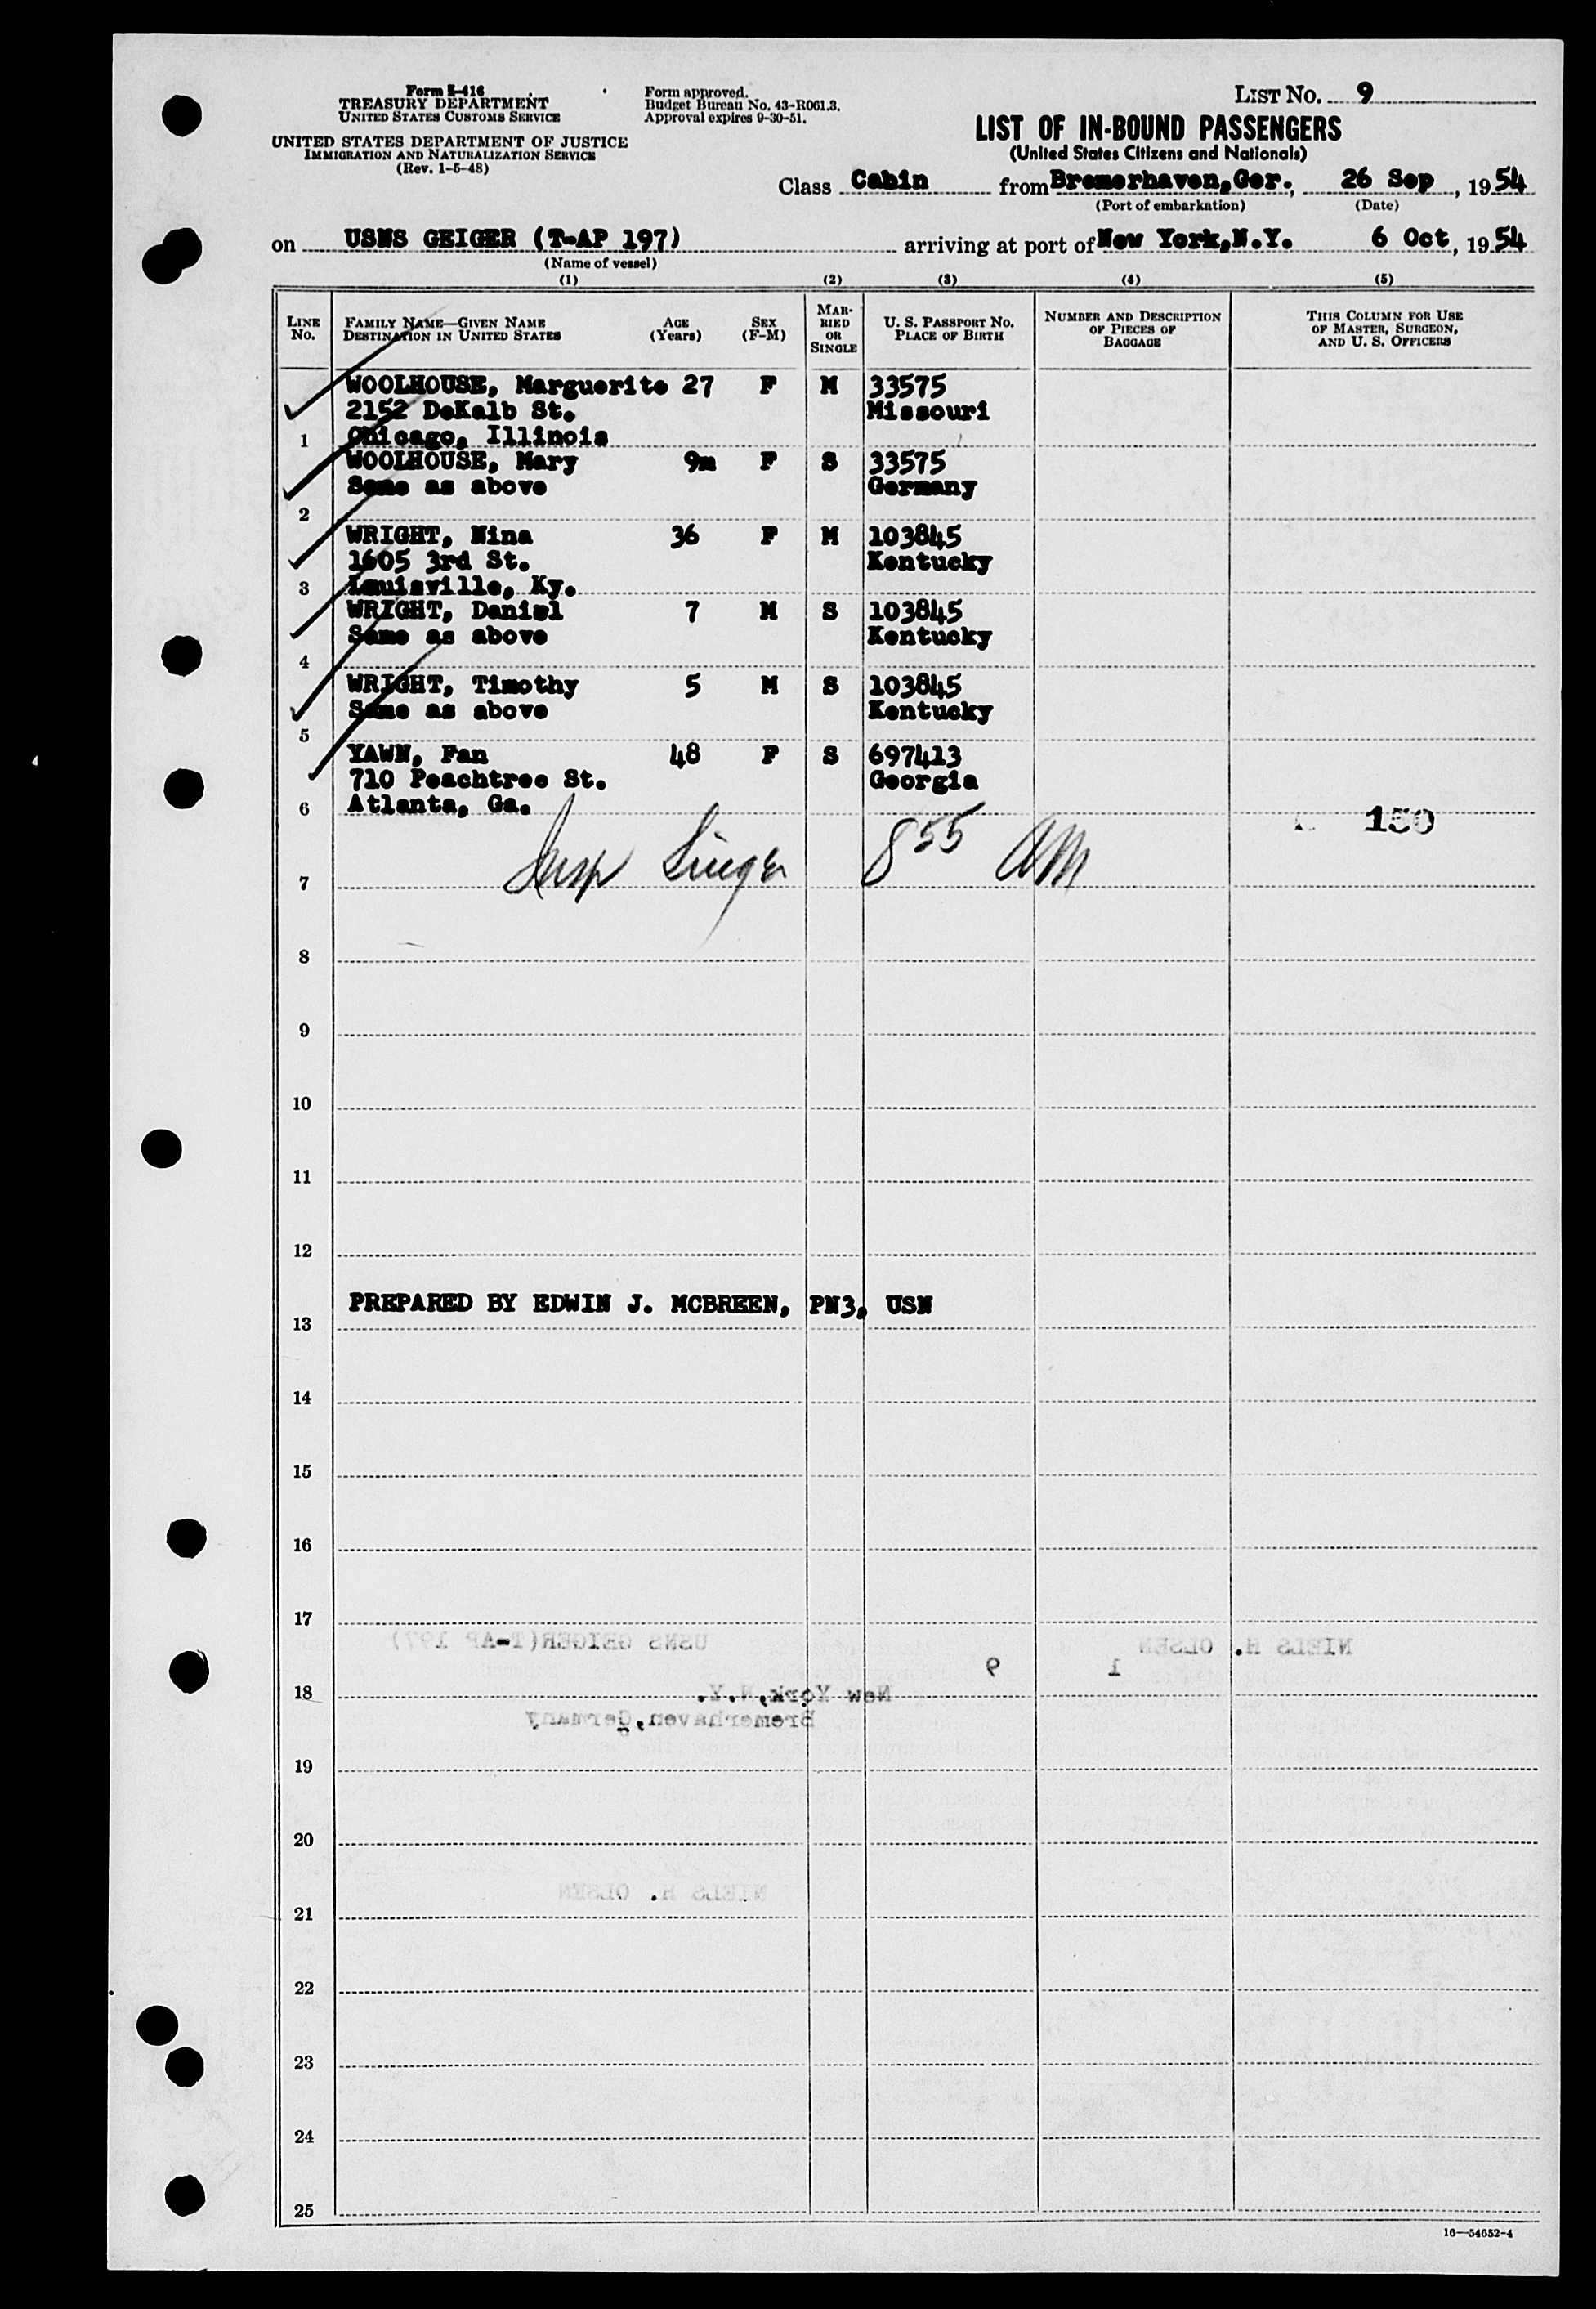 Form I-416
TREASURY DEPARTMENT
UNITED STATES CUSTOMS SERVICE
UNITED STATES DEPARTMENT OF JUSTICE
IMMIGRATION AND NATURALIZATION SERVICE
(Rev. 1-5-48)
Form approved.
Budget Bureau No. 43-R061.3.
Approval expires 9-30-51.
LIST No. 9
LIST OF IN-BOUND PASSENGERS
(United States Citizens and Nationals)
Class Cabin from Bremerhaven,Ger., 26 Sep, 1954
(Port of embarkation) (Date)
on USNS GEIGER (T-AP 197) arriving at port of New York,N.Y. 6 Oct, 1954
(Name of vessel)
(1) (2) (3) (4) (5)
LINE No. FAMILY NAME—GIVEN NAME DESTINATION IN UNITED STATES AGE (Years) SEX (F-M) MARRIED OR SINGLE U. S. PASSPORT No. PLACE OF BIRTH NUMBER AND DESCRIPTION OF PIECES OF BAGGAGE THIS COLUMN FOR USE OF MASTER, SURGEON, AND U. S. OFFICERS
WOOLHOUSE, Marguerite 27 F M 33575
2152 DeKalb St. Missouri
1 Chicago, Illinois
WOOLHOUSE, Mary 9m F S 33575
Same as above Germany
2
WRIGHT, Nina 36 F M 103845
1605 3rd St. Kentucky
3 Louisville, Ky.
WRIGHT, Daniel 7 M S 103845
Same as above Kentucky
4
WRIGHT, Timothy 5 M S 103845
Same as above Kentucky
5
YAWN, Fan 48 F S 697413
710 Peachtree St. Georgia
6 Atlanta, Ga.
150
Insp Singer 8 55 AM
7
8
9
10
11
12
PREPARED BY EDWIN J. MCBREEN, PN3, USN
13
14
15
16
17
USNS GEIGER(T-AP 197) NIELS H. OLSEN
9 1
18 New York,N.Y.
Bremerhaven,Germany
19
20
NIELS H. OLSEN
21
22
23
24
25
16—54652-4